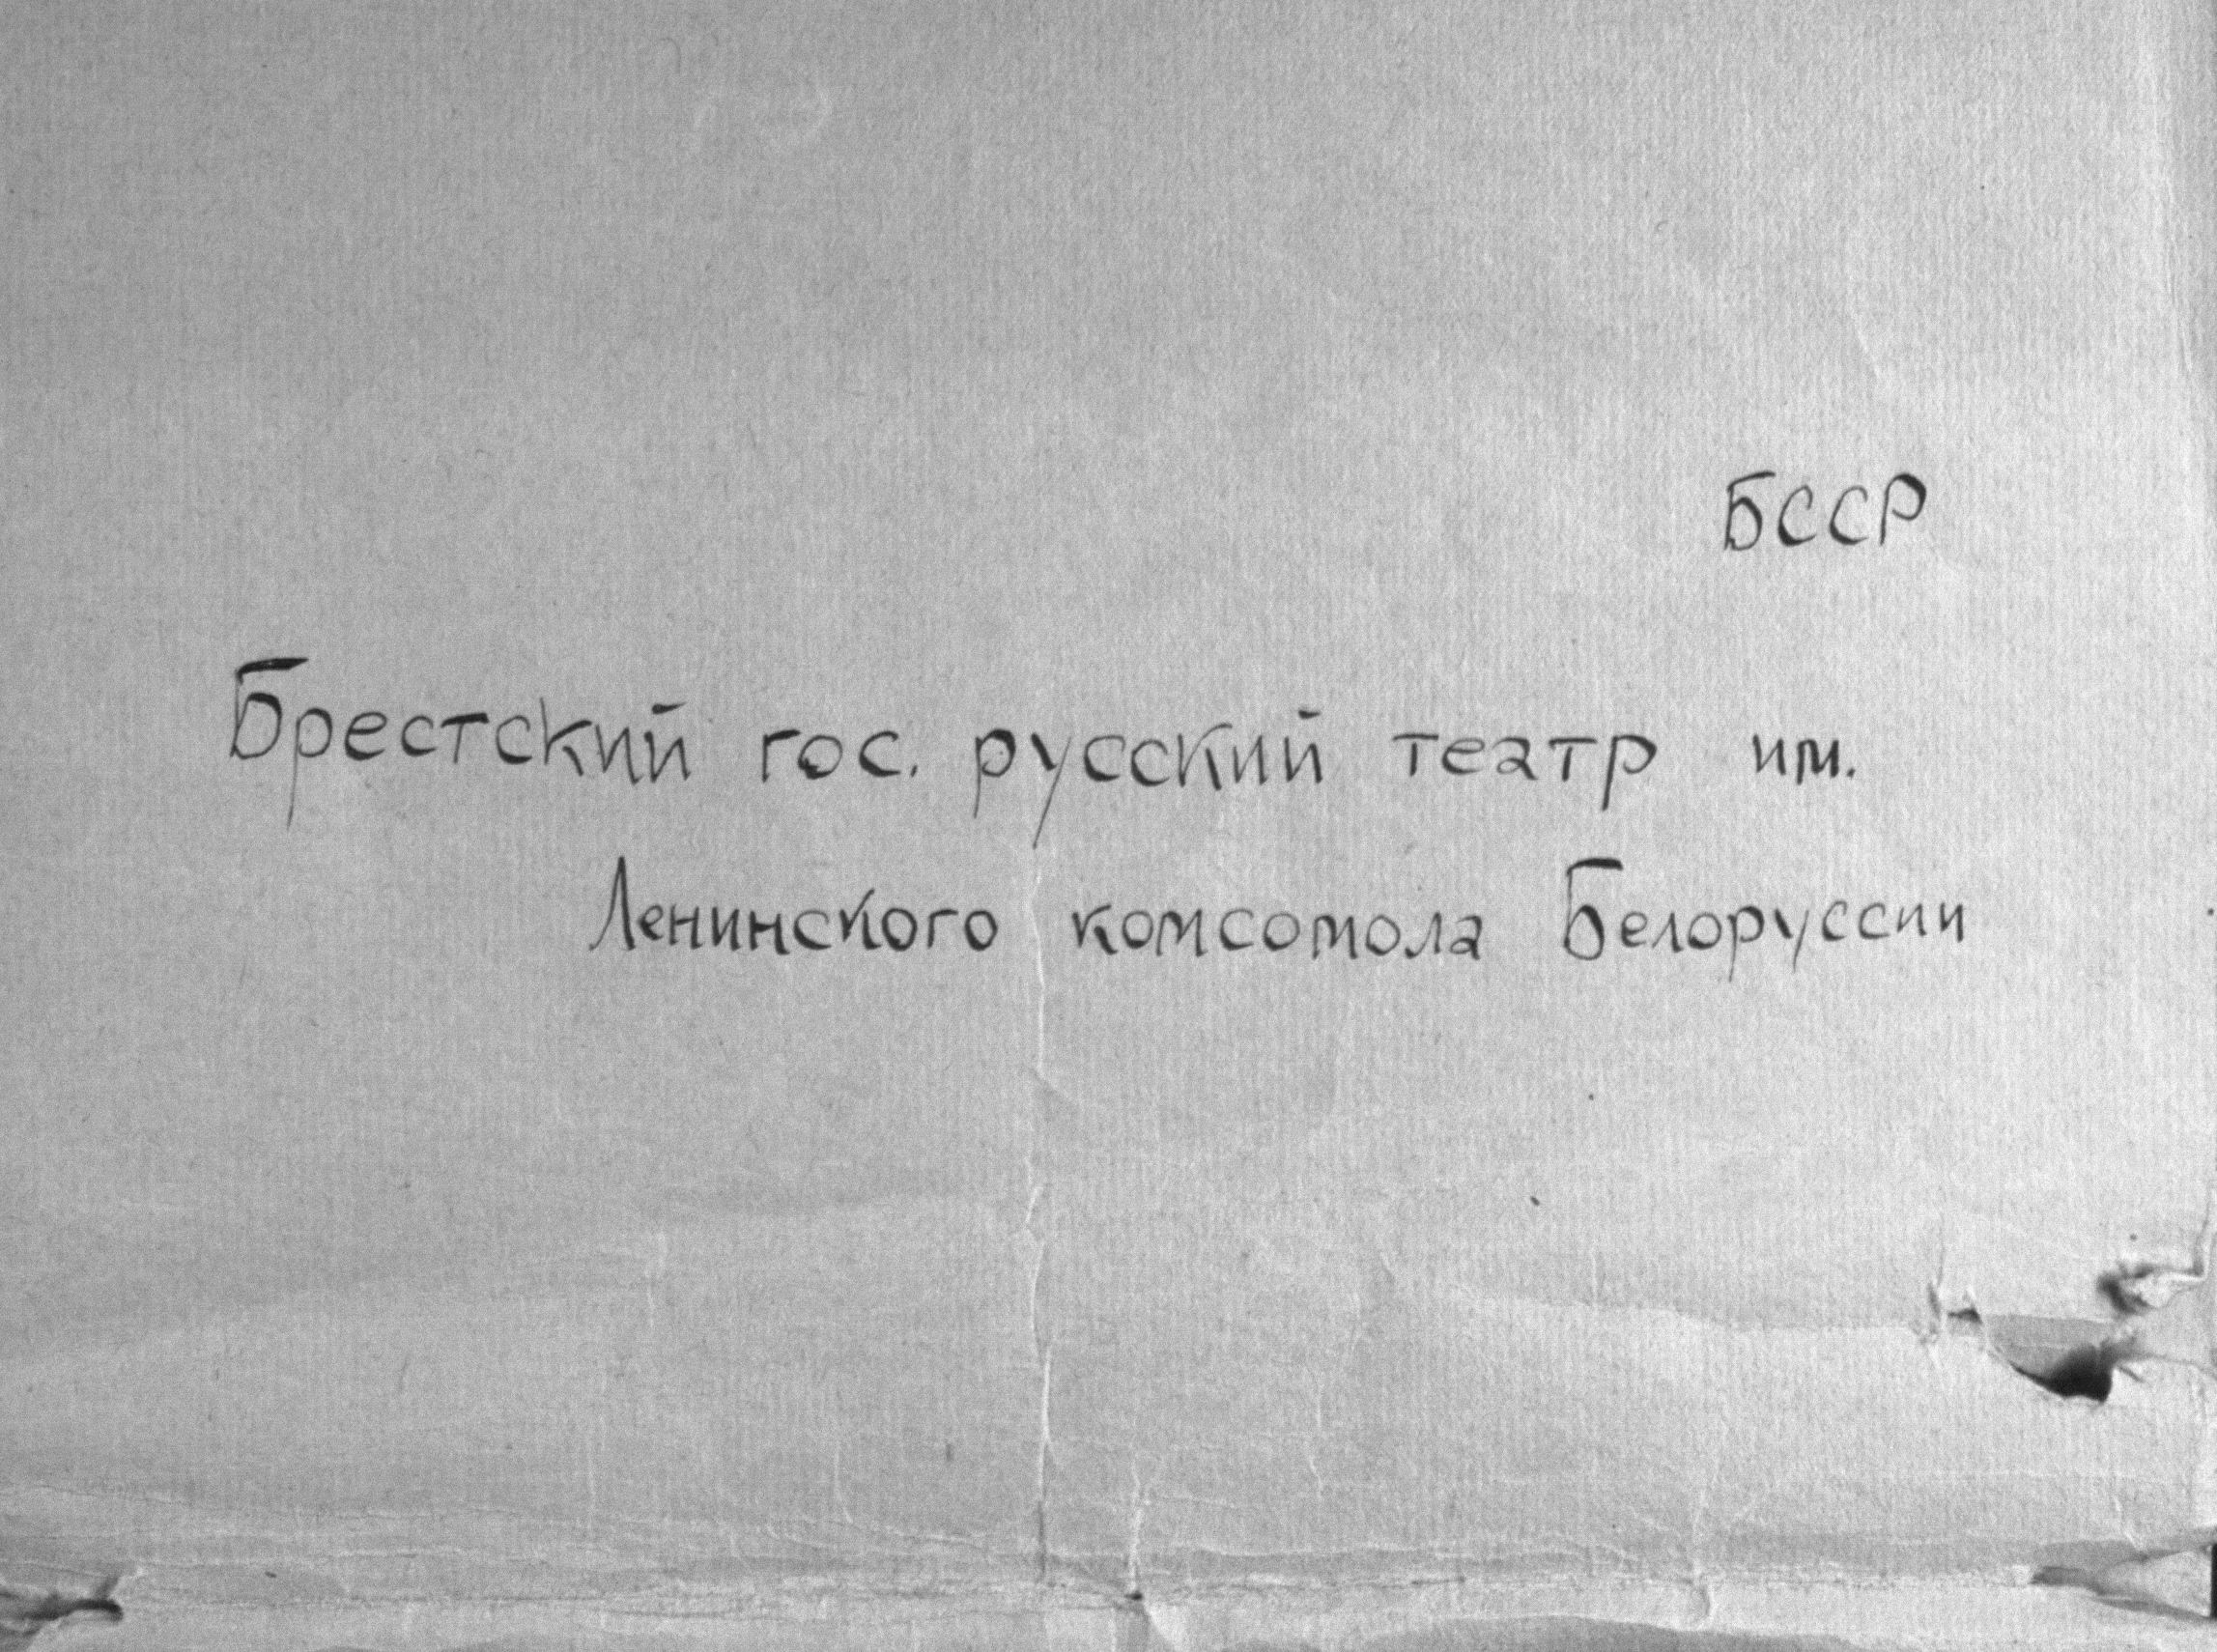 БССР
Брестский гос. русский театр им.
Ленинского комсомола Белоруссии